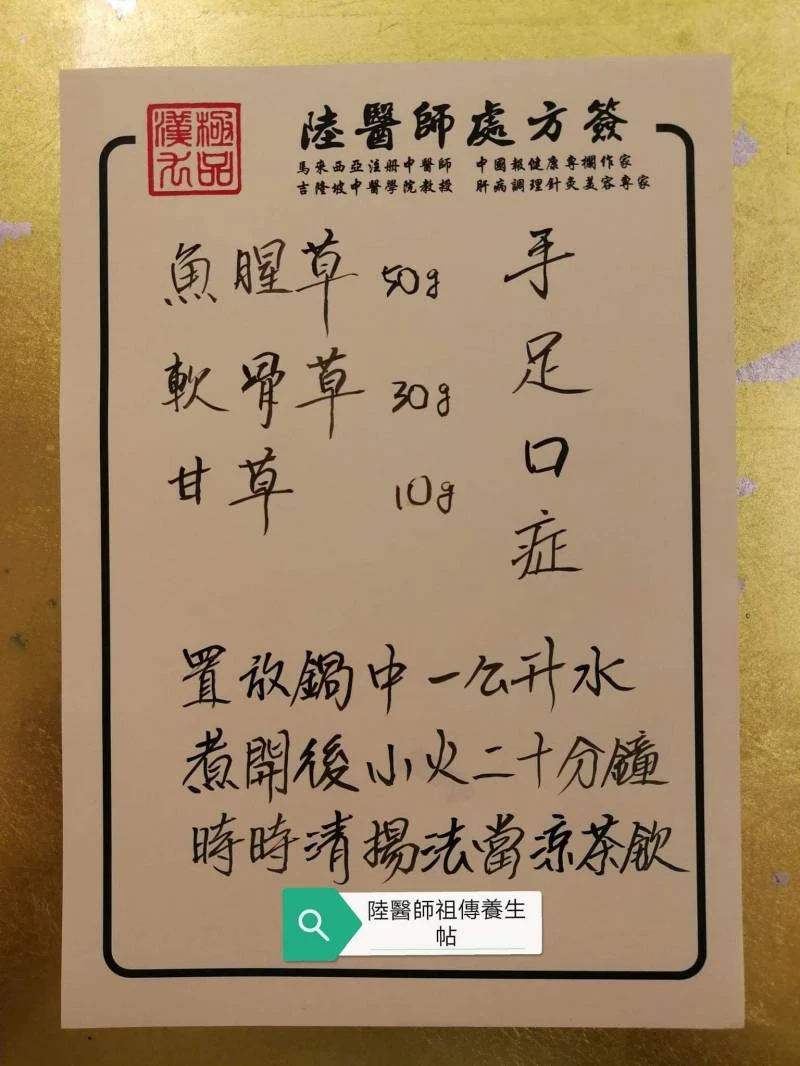 極品
漢方
陸醫師處方簽
馬來西亞注册中醫師 中國報健康專欄作家
吉隆坡中醫學院教授 肝病調理針灸美容專家
手足口症
魚腥草 50g
軟骨草 30g
甘草 10g
置放鍋中一公升水
煮開後小火二十分鐘
時時清揚法當涼茶飲
陸醫師祖傳養生
帖